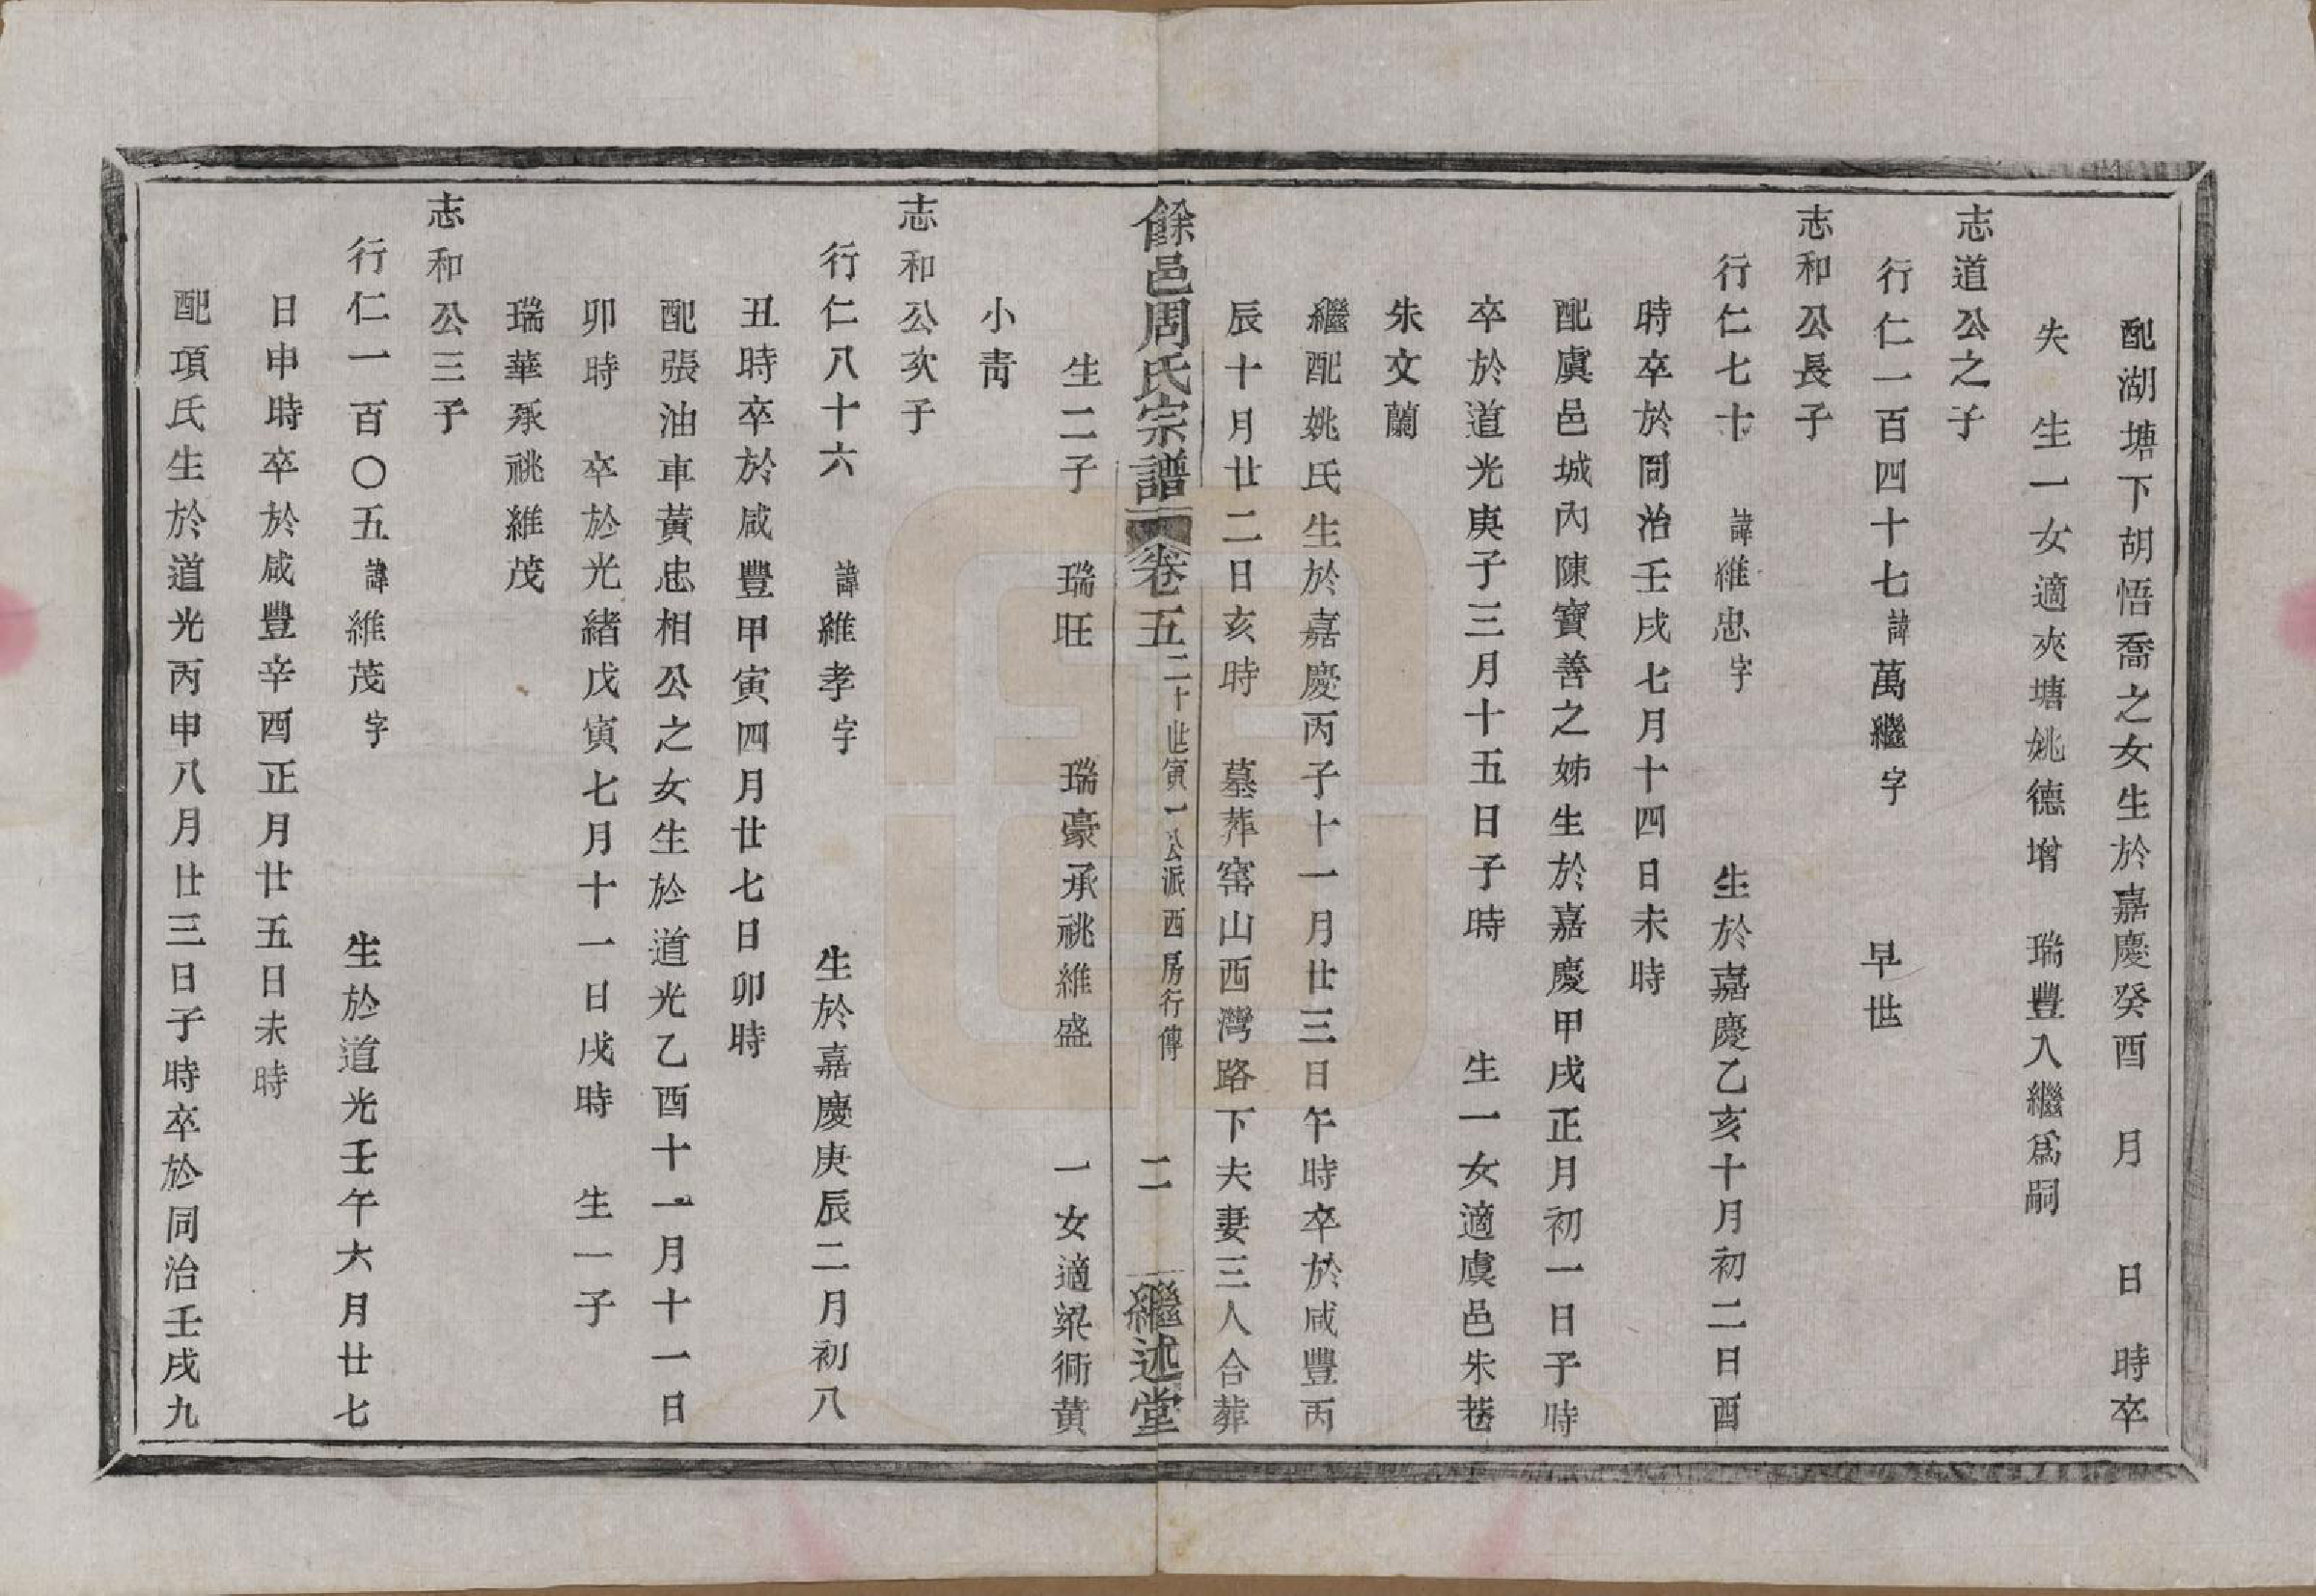 配湖塘下胡悟喬之女生於嘉慶癸酉　月　日　時卒
失　生一女適夾塘姚德增　瑞豐入繼爲嗣
志道公之子
行仁一百四十七諱萬繼字　早世
志和公長子
行仁七十　諱維忠字　生於嘉慶乙亥十月初二日酉
時卒於同治壬戌七月十四日未時
配虞邑城內陳寶善之姊生於嘉慶甲戌正月初一日子時
卒於道光庚子三月十五日子時　生一女適虞邑朱巷
朱文蘭
繼配姚氏生於嘉慶丙子十一月廿三日午時卒於咸豐丙
辰十月廿二日亥時　墓葬窰山西灣路下夫妻三人合葬
餘邑周氏宗譜　卷五　二十世寅一公派西房行傳　二　繼述堂
生二子　瑞旺　瑞豪承祧維盛　一女適梁衕黄
小靑
志和公次子
行仁八十六　諱維孝字　生於嘉慶庚辰二月初八
丑時卒於咸豐甲寅四月廿七日卯時
配張油車黃忠相公之女生於道光乙酉十一月十一日
卯時　卒於光緖戊寅七月十一日戌時　生一子
瑞華承祧維茂
志和公三子
行仁一百〇五諱維茂字　生於道光壬午六月廿七
日申時卒於咸豐辛酉正月廿五日未時
配項氏生於道光丙申八月廿三日子時卒於同治壬戌九